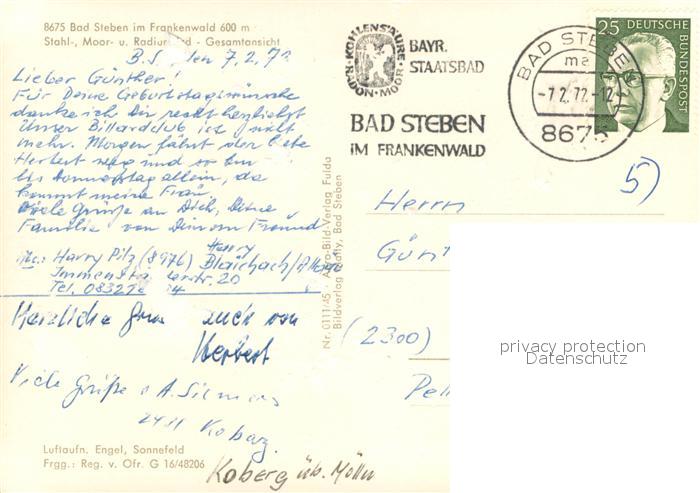 8675 Bad Steben im Frankenwald 600 m
Stahl-, Moor- u. Radiumbad - Gesamtansicht
B.S., den 7.2.72
Lieber Günther!
Für Deine Geburtstagswünsche
danke ich Dir recht herzlichst
unser Billardclub ist nicht
mehr. Morgen fährt der liebe
Herbert weg und so bin
bis Donnerstag allein, da
kommt meine Frau.
Viele Grüße an Dich, Deine
Familie von Deinem Freund
Harry
Abs.: Harry Pilz (8976) Blaichach/Allgäu
Immenstädterstr. 20
Tel. 08321
Herzliche Grüße auch von
Herbert
Viele Grüße v. A.
2411 Kobg.
Koberg üb. Mölln
Luftaufn. Engel, Sonnefeld
Frgg.: Reg. v. Ofr. G 16/48206
Nr. 0111/45 - Aero-Bild-Verlag Fulda
Bildverlag Bad Steben
KOHLENSÄURE · RADON · MOOR
BAYR.
STAATSBAD
BAD STEBEN
IM FRANKENWALD
BAD STEBEN 1
ma
-7.2.72.-12
8675
25 DEUTSCHE
BUNDESPOST
5)
Herrn
Günt
(2300)
privacy protection
Datenschutz